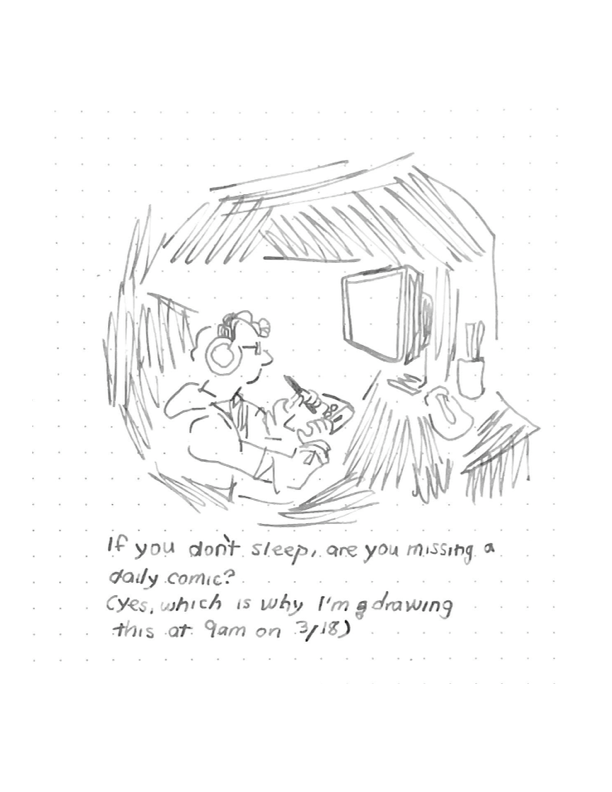 If you don't sleep, are you missing a
daily comic?
(yes, which is why I'm drawing
this at 9am on 3/18)